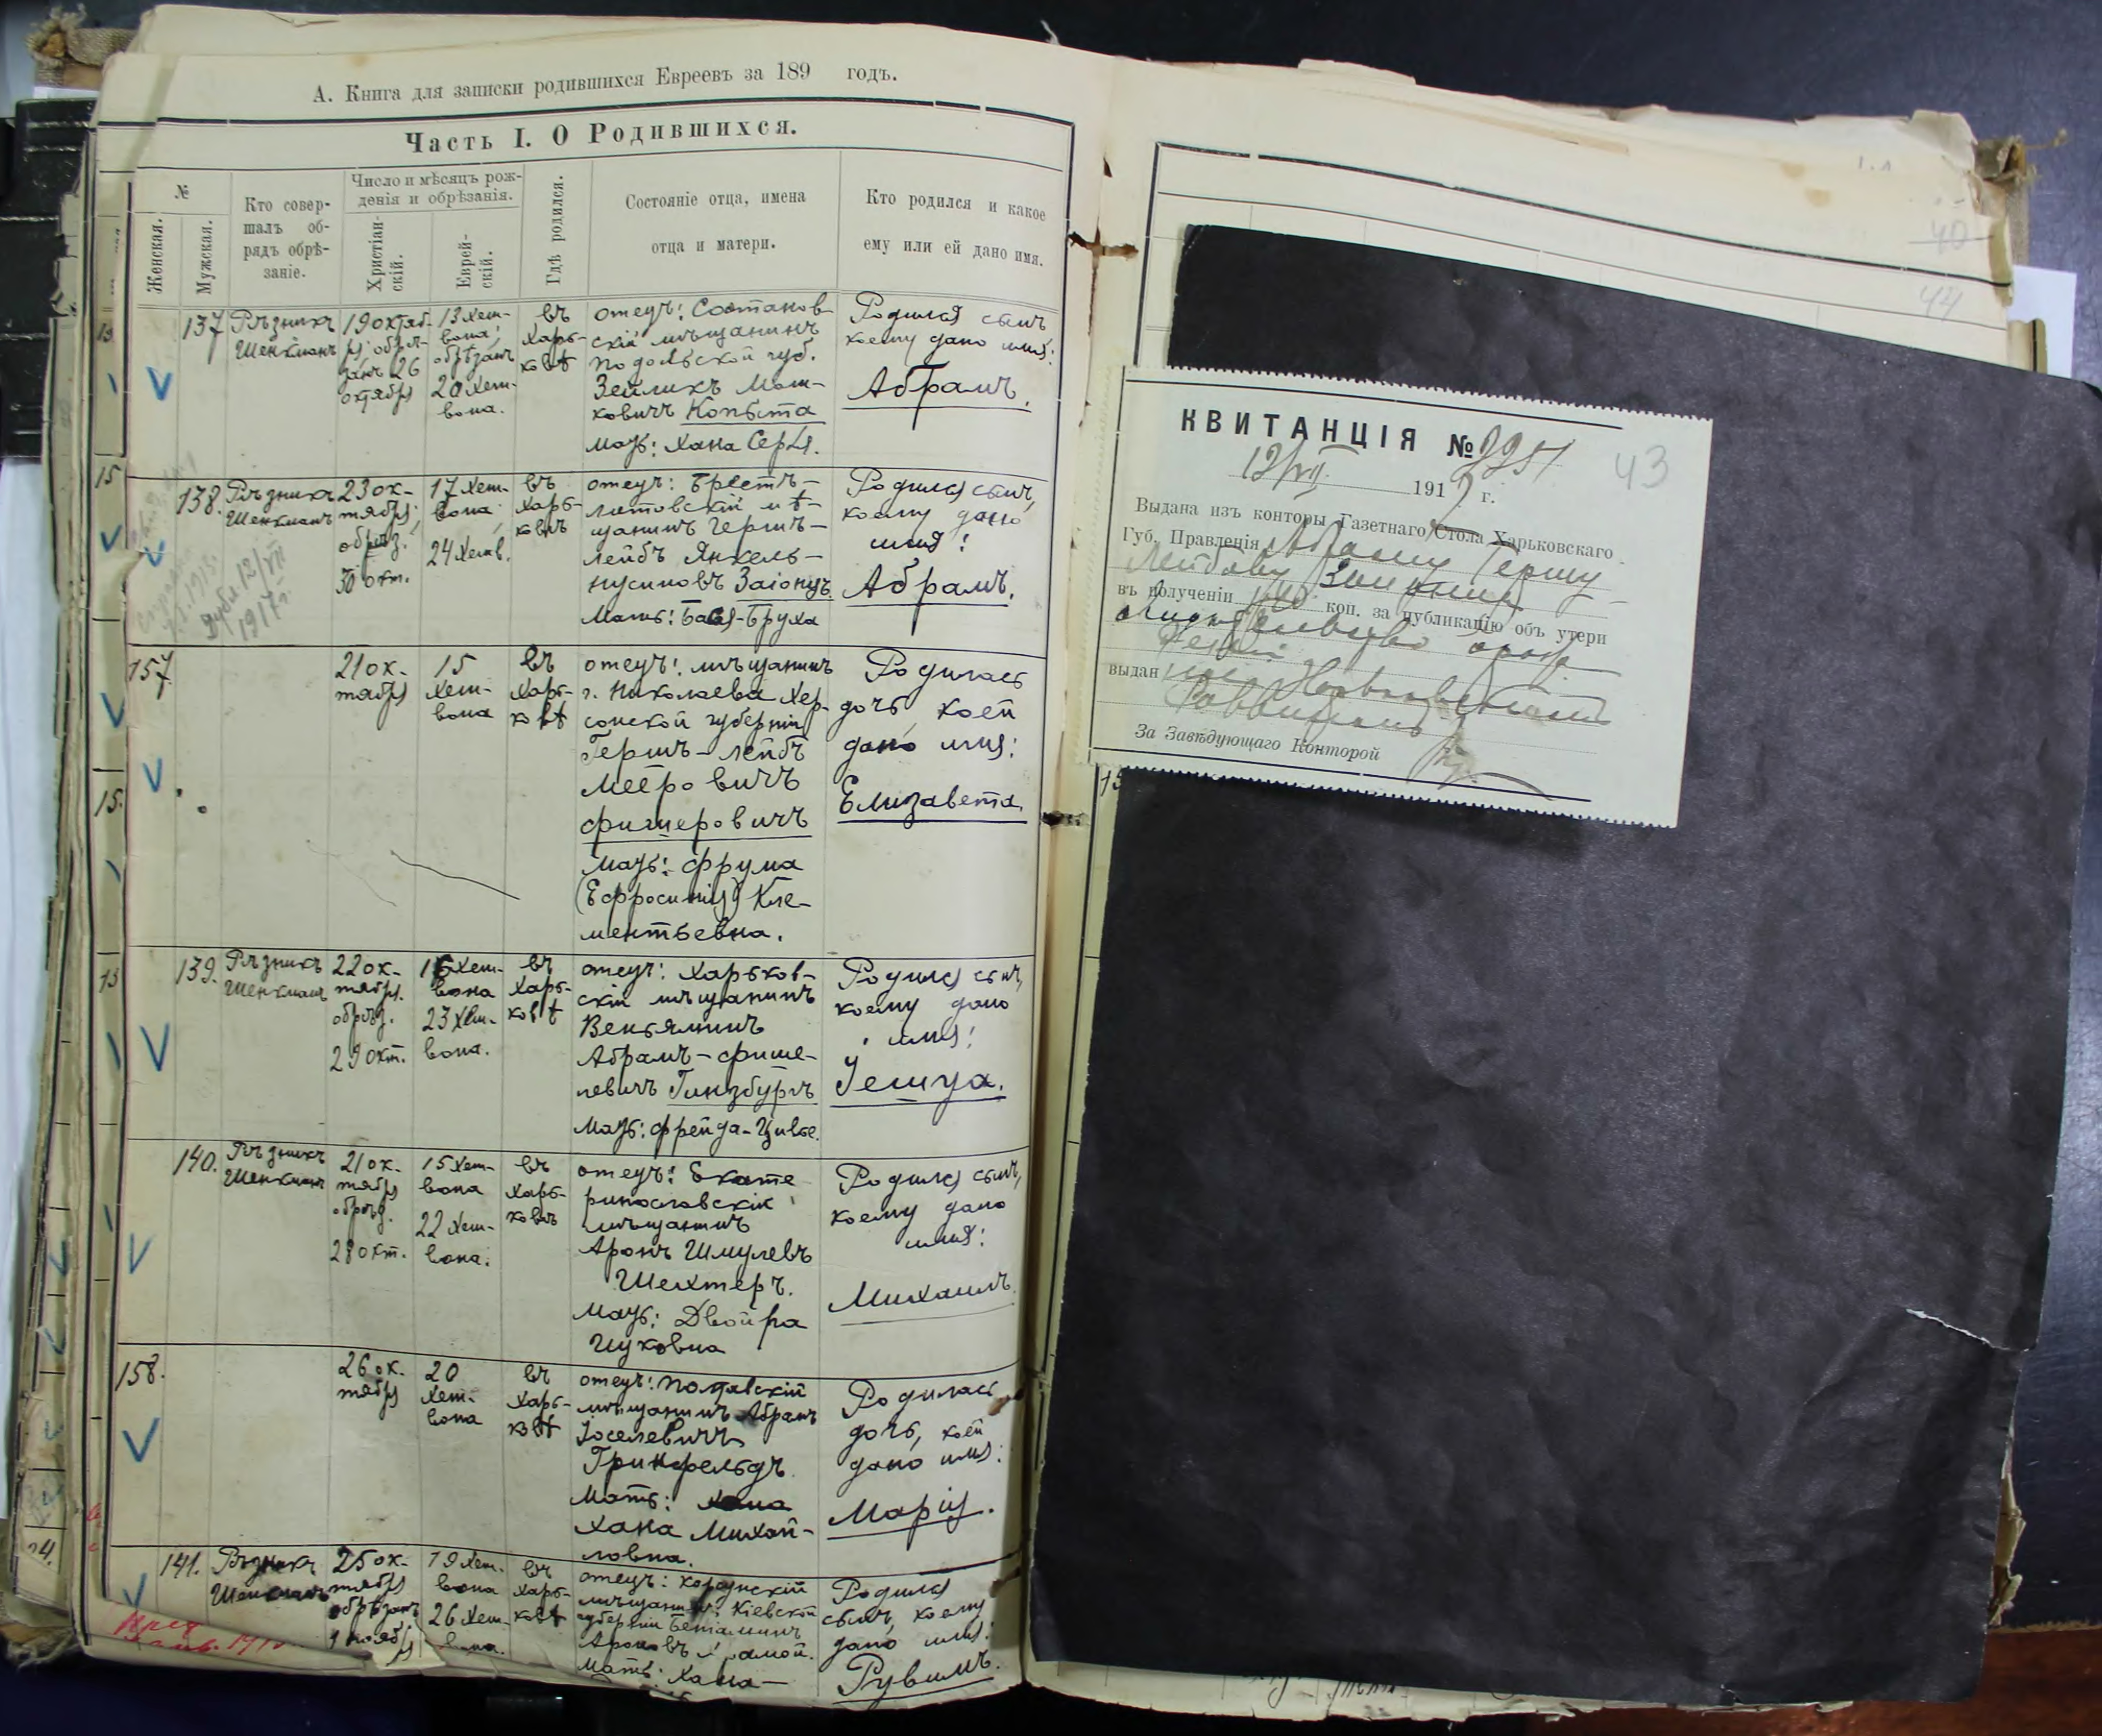 А. Книга для записки родившихся Евреевъ за 189 годъ.
Часть I. О Родившихся.
№
Женская.
Мужская.
Кто совер-
шалъ об-
рядъ обрѣ-
заніе.
Число и мѣсяцъ рож-
денія и обрѣзанія.
Христіан-
скій.
Еврей-
скій.
Гдѣ родился.
Состояніе отца, имена
отца и матери.
Кто родился и какое
ему или ей дано имя.
137
Рѣзникъ
Шенкманъ
19 октяб-
ря; обрѣ-
занъ 26
октября
13 Хеш-
вона;
обрѣзанъ
20 Хеш-
вона.
въ
Харь-
ковѣ
отецъ:
скій мѣщанинъ
Подольской губ.
Зейликъ Мош-
ковичъ Копыта
мать: Хана
Родился сынъ
коему дано имя:
Абрамъ.
138.
Рѣзникъ
Шенкманъ
23 ок-
тября;
обрѣз.
30 окт.
17 Хеш-
вона;
24 Хешв.
въ
Харь-
ковѣ
отецъ: Брестъ-
литовскій мѣ-
щанинъ Гершъ-
Лейбъ Янкель-
нусиновъ Заіонцъ.
Мать: Бася-Бруха
Родился сынъ,
коему дано
имя:
Абрамъ.
12/VII
1917 г.
157
21 ок-
тября
15
Хеш-
вона
въ
Харь-
ковѣ
отецъ: мѣщанинъ
г. Николаева Хер-
сонской губерніи
Гершъ-Лейбъ
Мееровичъ
Фишеровичъ
мать: Фрума
(Ефросинія) Кле-
ментьевна.
Родилась
дочь, коей
дано имя:
Елизавета.
139.
Рѣзникъ
Шенкманъ
22 ок-
тября.
обрѣз.
29 окт.
16 Хеш-
вона
23 Хеш-
вона.
въ
Харь-
ковѣ
отецъ: Харьков-
скій мѣщанинъ
Веньяминъ
Абрамъ-Фише-
левичъ Гинзбургъ
Мать: Фрейда-Цивье.
Родился сынъ,
коему дано
имя:
Іешуа.
140.
Рѣзникъ
Шенкманъ
21 ок-
тября
обрѣз.
28 окт.
15 Хеш-
вона
22 Хеш-
вона.
въ
Харь-
ковѣ
отецъ: Екате
ринославскій
мѣщанинъ
Аронъ Шмулевъ
Шехтеръ.
мать: Двойра
Ицковна
Родился сынъ,
коему дано
имя:
Михаилъ
158.
26 ок-
тября
20
Хеш-
вона
въ
Харь-
ковѣ
отецъ: Полтавскій
мѣщанинъ Абрамъ
Іоселевичъ
Гринфельдъ.
Мать:
Хана Михай-
ловна.
Родилась
дочь, коей
дано имя:
Марія.
141.
Рѣзникъ
Шенкманъ
25 ок-
тября
обрѣзанъ
1 ноября
19 Хеш-
вона
26 Хеш-
вона.
въ
Харь-
ковѣ
отецъ:
мѣщанинъ Кіевской
губерніи Беніаминъ
Ароновъ
Мать: Хана-
Родился
сынъ, коему
дано имя:
Рувимъ.
КВИТАНЦІЯ № 2251
43
12/VII 1917 г.
Выдана изъ конторы Газетнаго Стола Харьковскаго
Губ. Правленія Абраму Гершу
Лейбову
въ полученіи коп. за публикацію объ утери
выдан
За Завѣдующаго Конторой
40
44